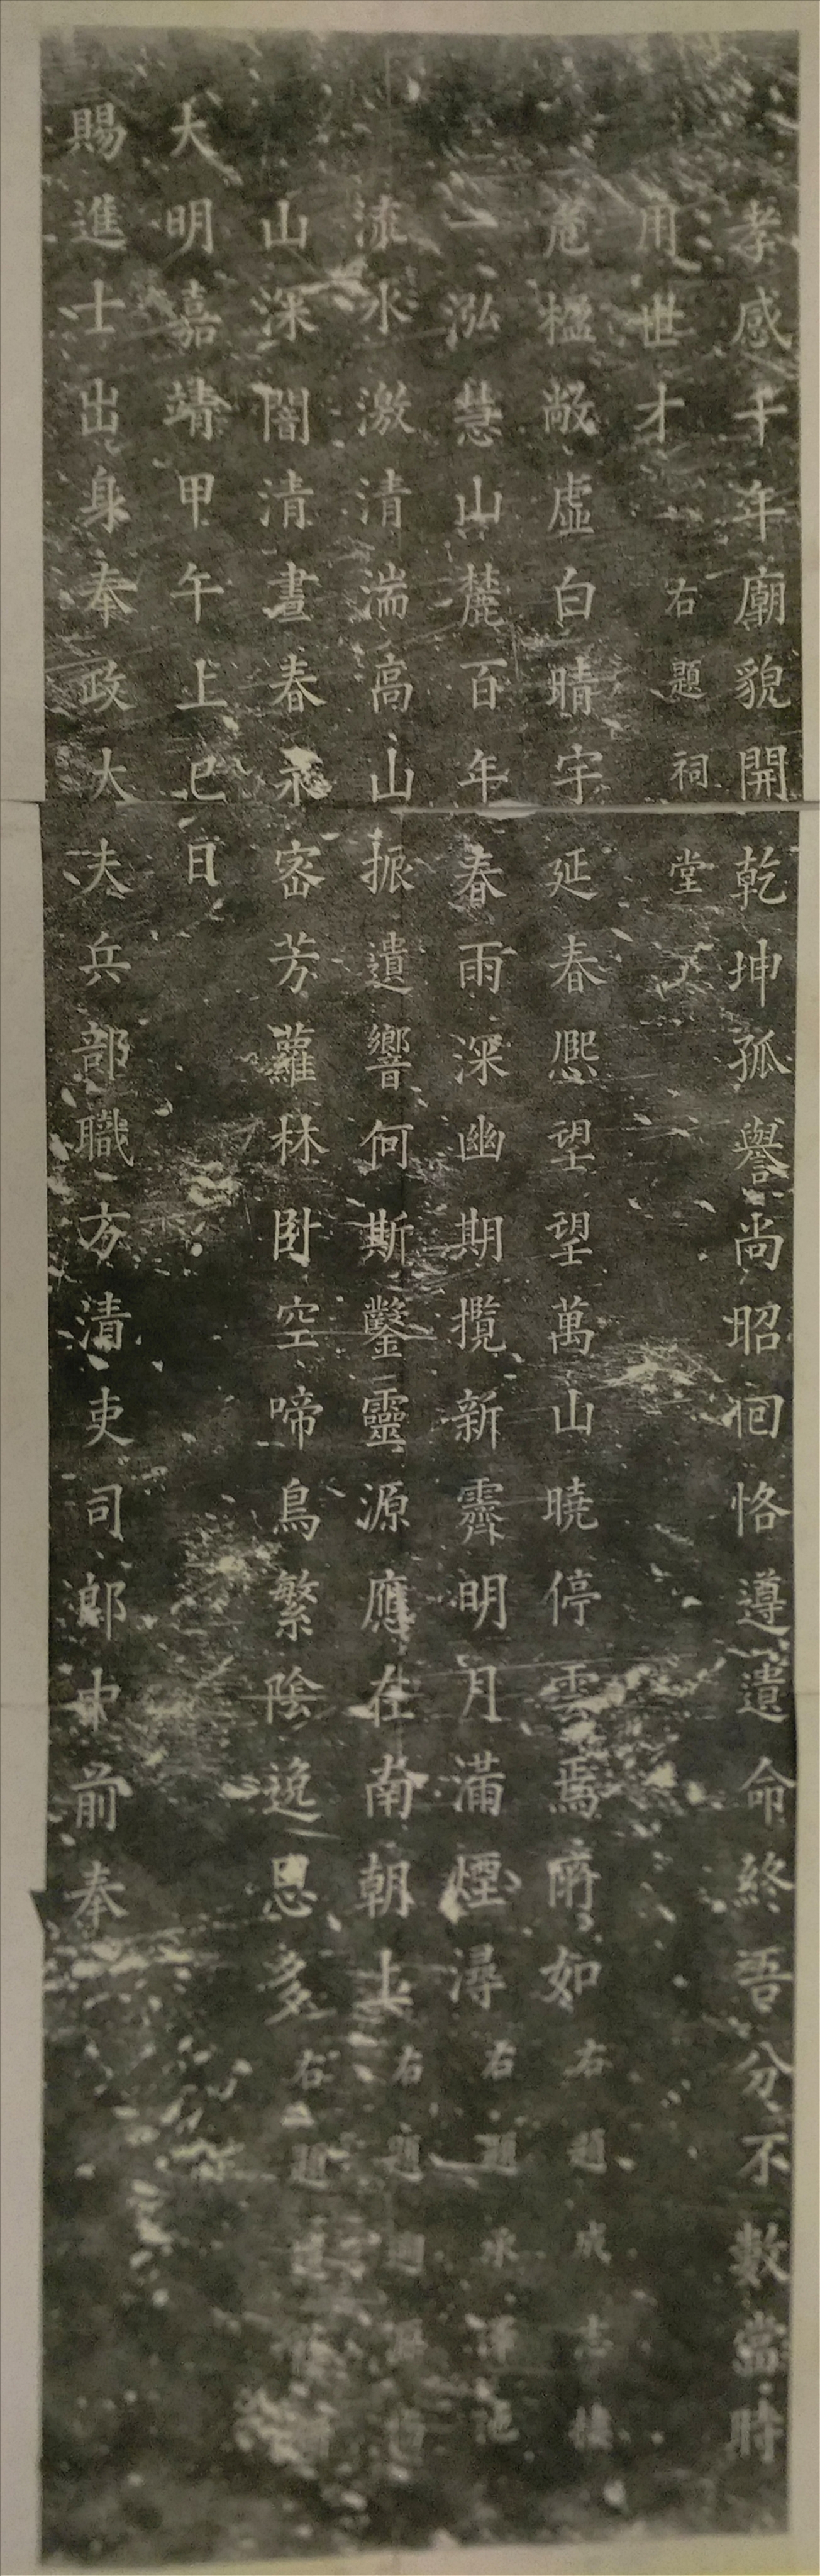 孝感千年廟貌開乾坤孤譽尚昭回恪遵遺命終吾分不數當時
用世才 右題祠堂
危楹敞虛白晴宇延春熙望望萬山曉停雲焉所如 右題成志樓
一泓慧山麓百年春雨深幽期攬新霽明月滿煙潯 右題承澤池
流水激清湍高山振遺響何斯鑿靈源應在南朝上 右題
山深闇清晝春永密芳蘿林臥空啼鳥繁陰逸思多 右題
大明嘉靖甲午上巳日
賜進士出身奉政大夫兵部職方清吏司郎中前奉